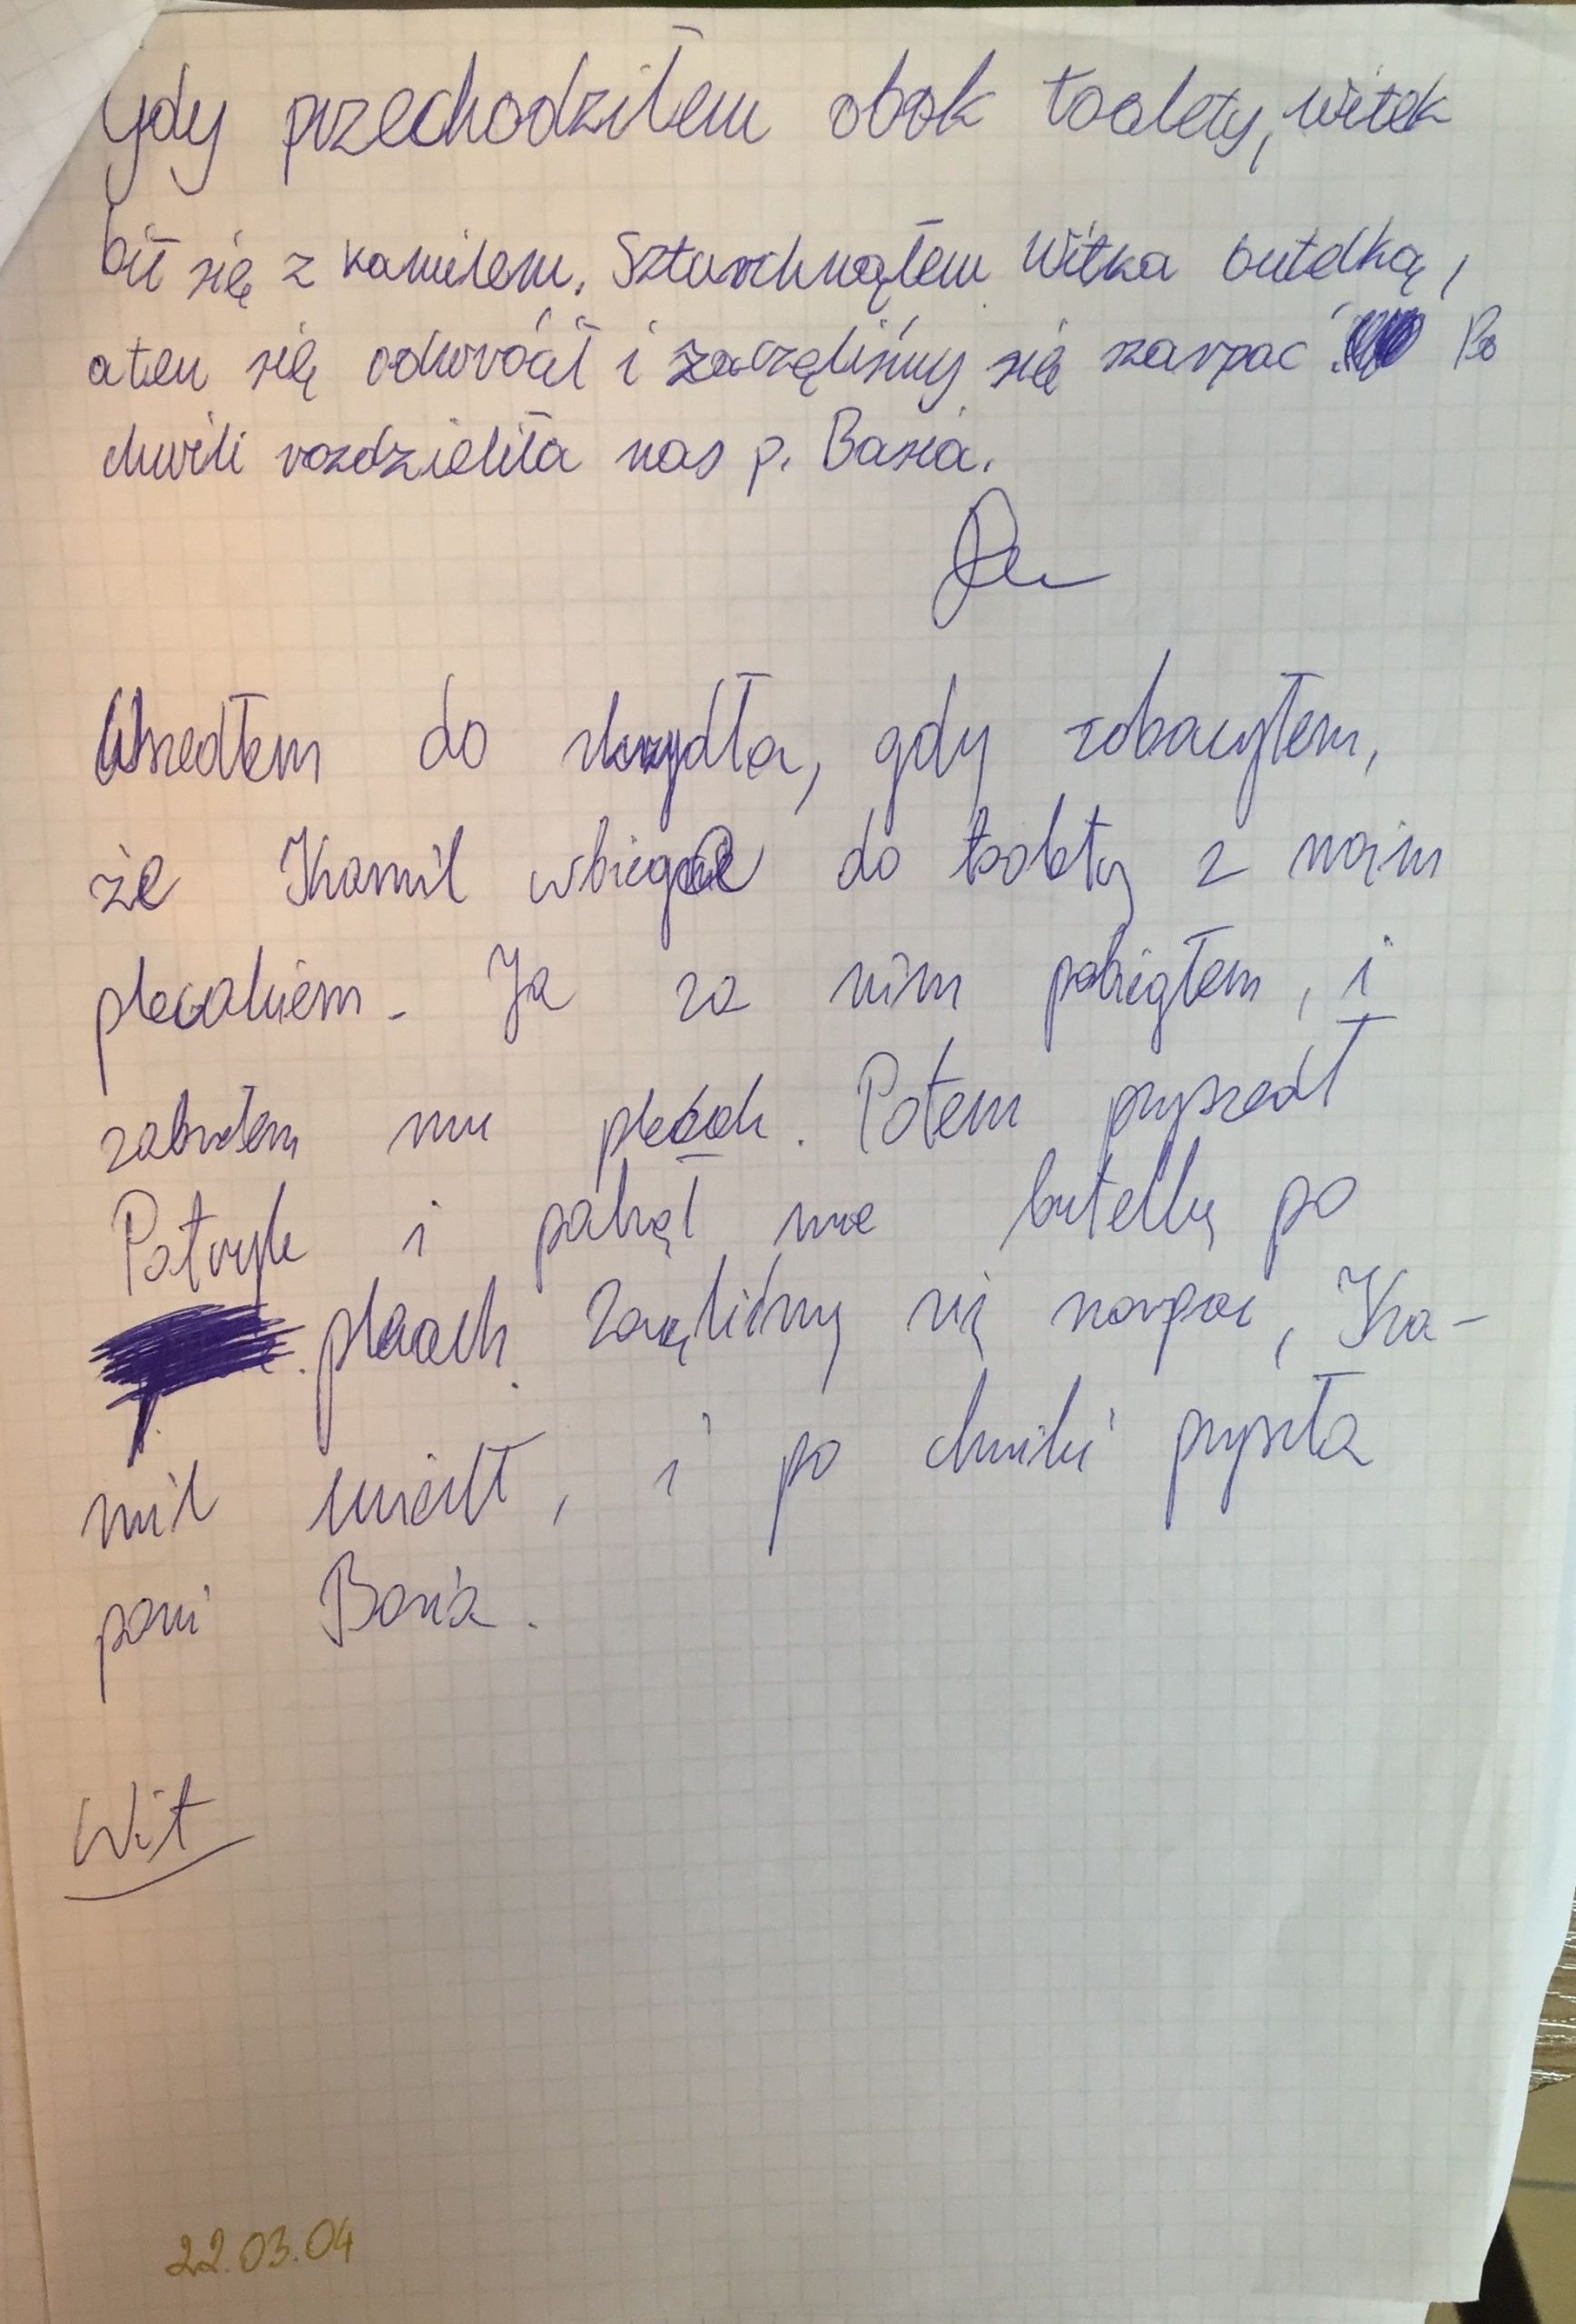 Gdy przechodziłem obok toalety, witek
bił się z kamilem. Szturchnąłem Witka butelką,
a ten się odwrócił i zaczęliśmy się szarpać. Po
chwili rozdzieliła nas p. Basia.
Wszedłem do skrzydła, gdy zobaczyłem,
że Kamil wbiega do toalety z moim
plecakiem. Ja za nim pobiegłem, i
zabrałem mu plecak. Potem przyszedł
Patryk i palnął mnie butelką po
plecach. Zaczęliśmy się szarpać, Ka-
mil uciekł, i po chwili przyszła
pani Basia.
Wit
22.03.04